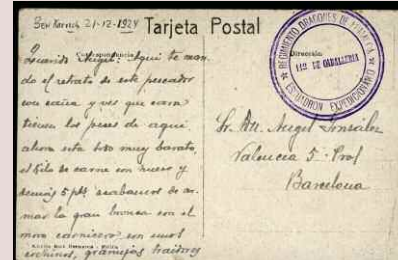 Ben Karrich 21-12-1924
Tarjeta Postal
Correspondencia
Dirección
REGIMIENTO DRAGONES DE NUMANCIA
11º DE CABALLERIA
ESCUADRON EXPEDICIONARIO
Querido Angel: Aqui te man
do el retrato de este pescador
con caña y ves que cara
tienen los peces de aqui
ahora esta todo muy barato,
el Kilo de carne con hueso y
5 pts acabamos de ar
mar la gran bronca con el
moro carnicero, son unos
cochinos, granujas traidores
Sr. Dn. Angel González
Valencia 5 - Pral
Barcelona